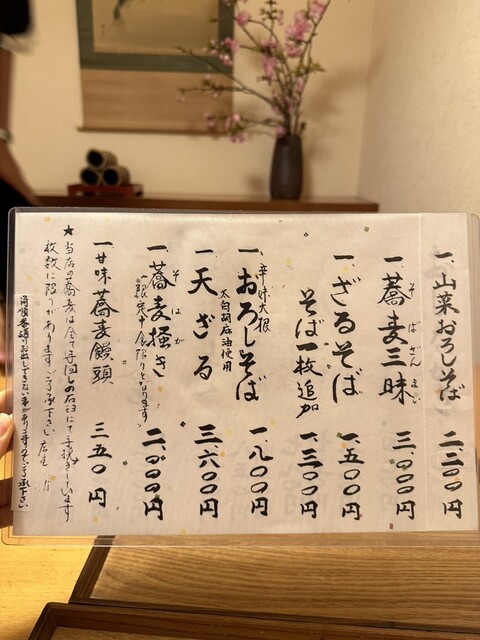 一、山菜おろしそば 二、二〇〇円
一、蕎麦三昧 三、〇〇〇円
そばざんまい
一、ざるそば 一、五〇〇円
そば一枚追加 一、三〇〇円
一、おろしそば 一、八〇〇円
辛味大根
一、天ざる 三、六〇〇円
太白胡麻油使用
一、蕎麦掻き 二、〇〇〇円
そばが
一、甘味蕎麦饅頭 三五〇円
★当店の蕎麦は全て手回しの石臼にて手挽きしています
枚数に限りがあります ご了承下さい 店主